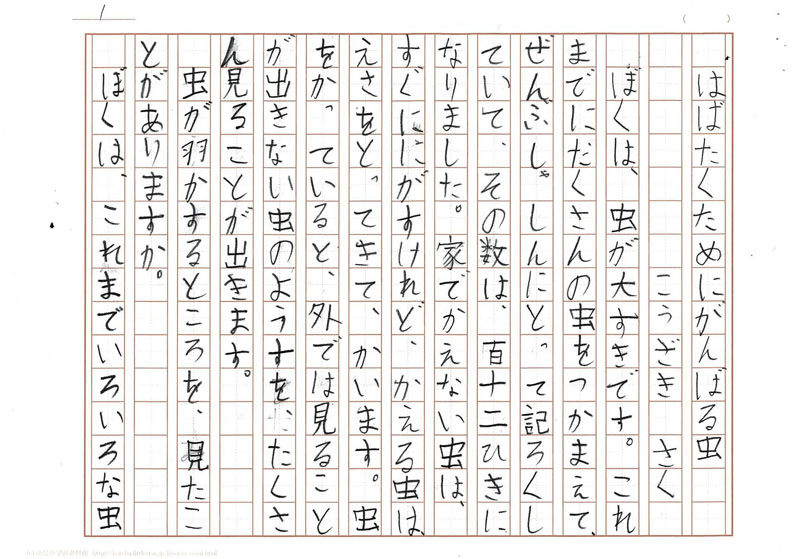 1
(　)
はばたくためにがんばる虫
こうざき さく
ぼくは、虫が大すきです。これ
までにたくさんの虫をつかまえて、
ぜんぶしゃしんにとって記ろくし
ていて、その数は、百十二ひきに
なりました。家でかえない虫は、
すぐににがすけれど、かえる虫は
えさをとってきて、かいます。虫
をかっていると、外では見ること
が出きない虫のようすを、たくさ
ん見ることが出きます。
虫が羽かするところを、見たこ
とがありますか。
ぼくは、これまでいろいろな虫